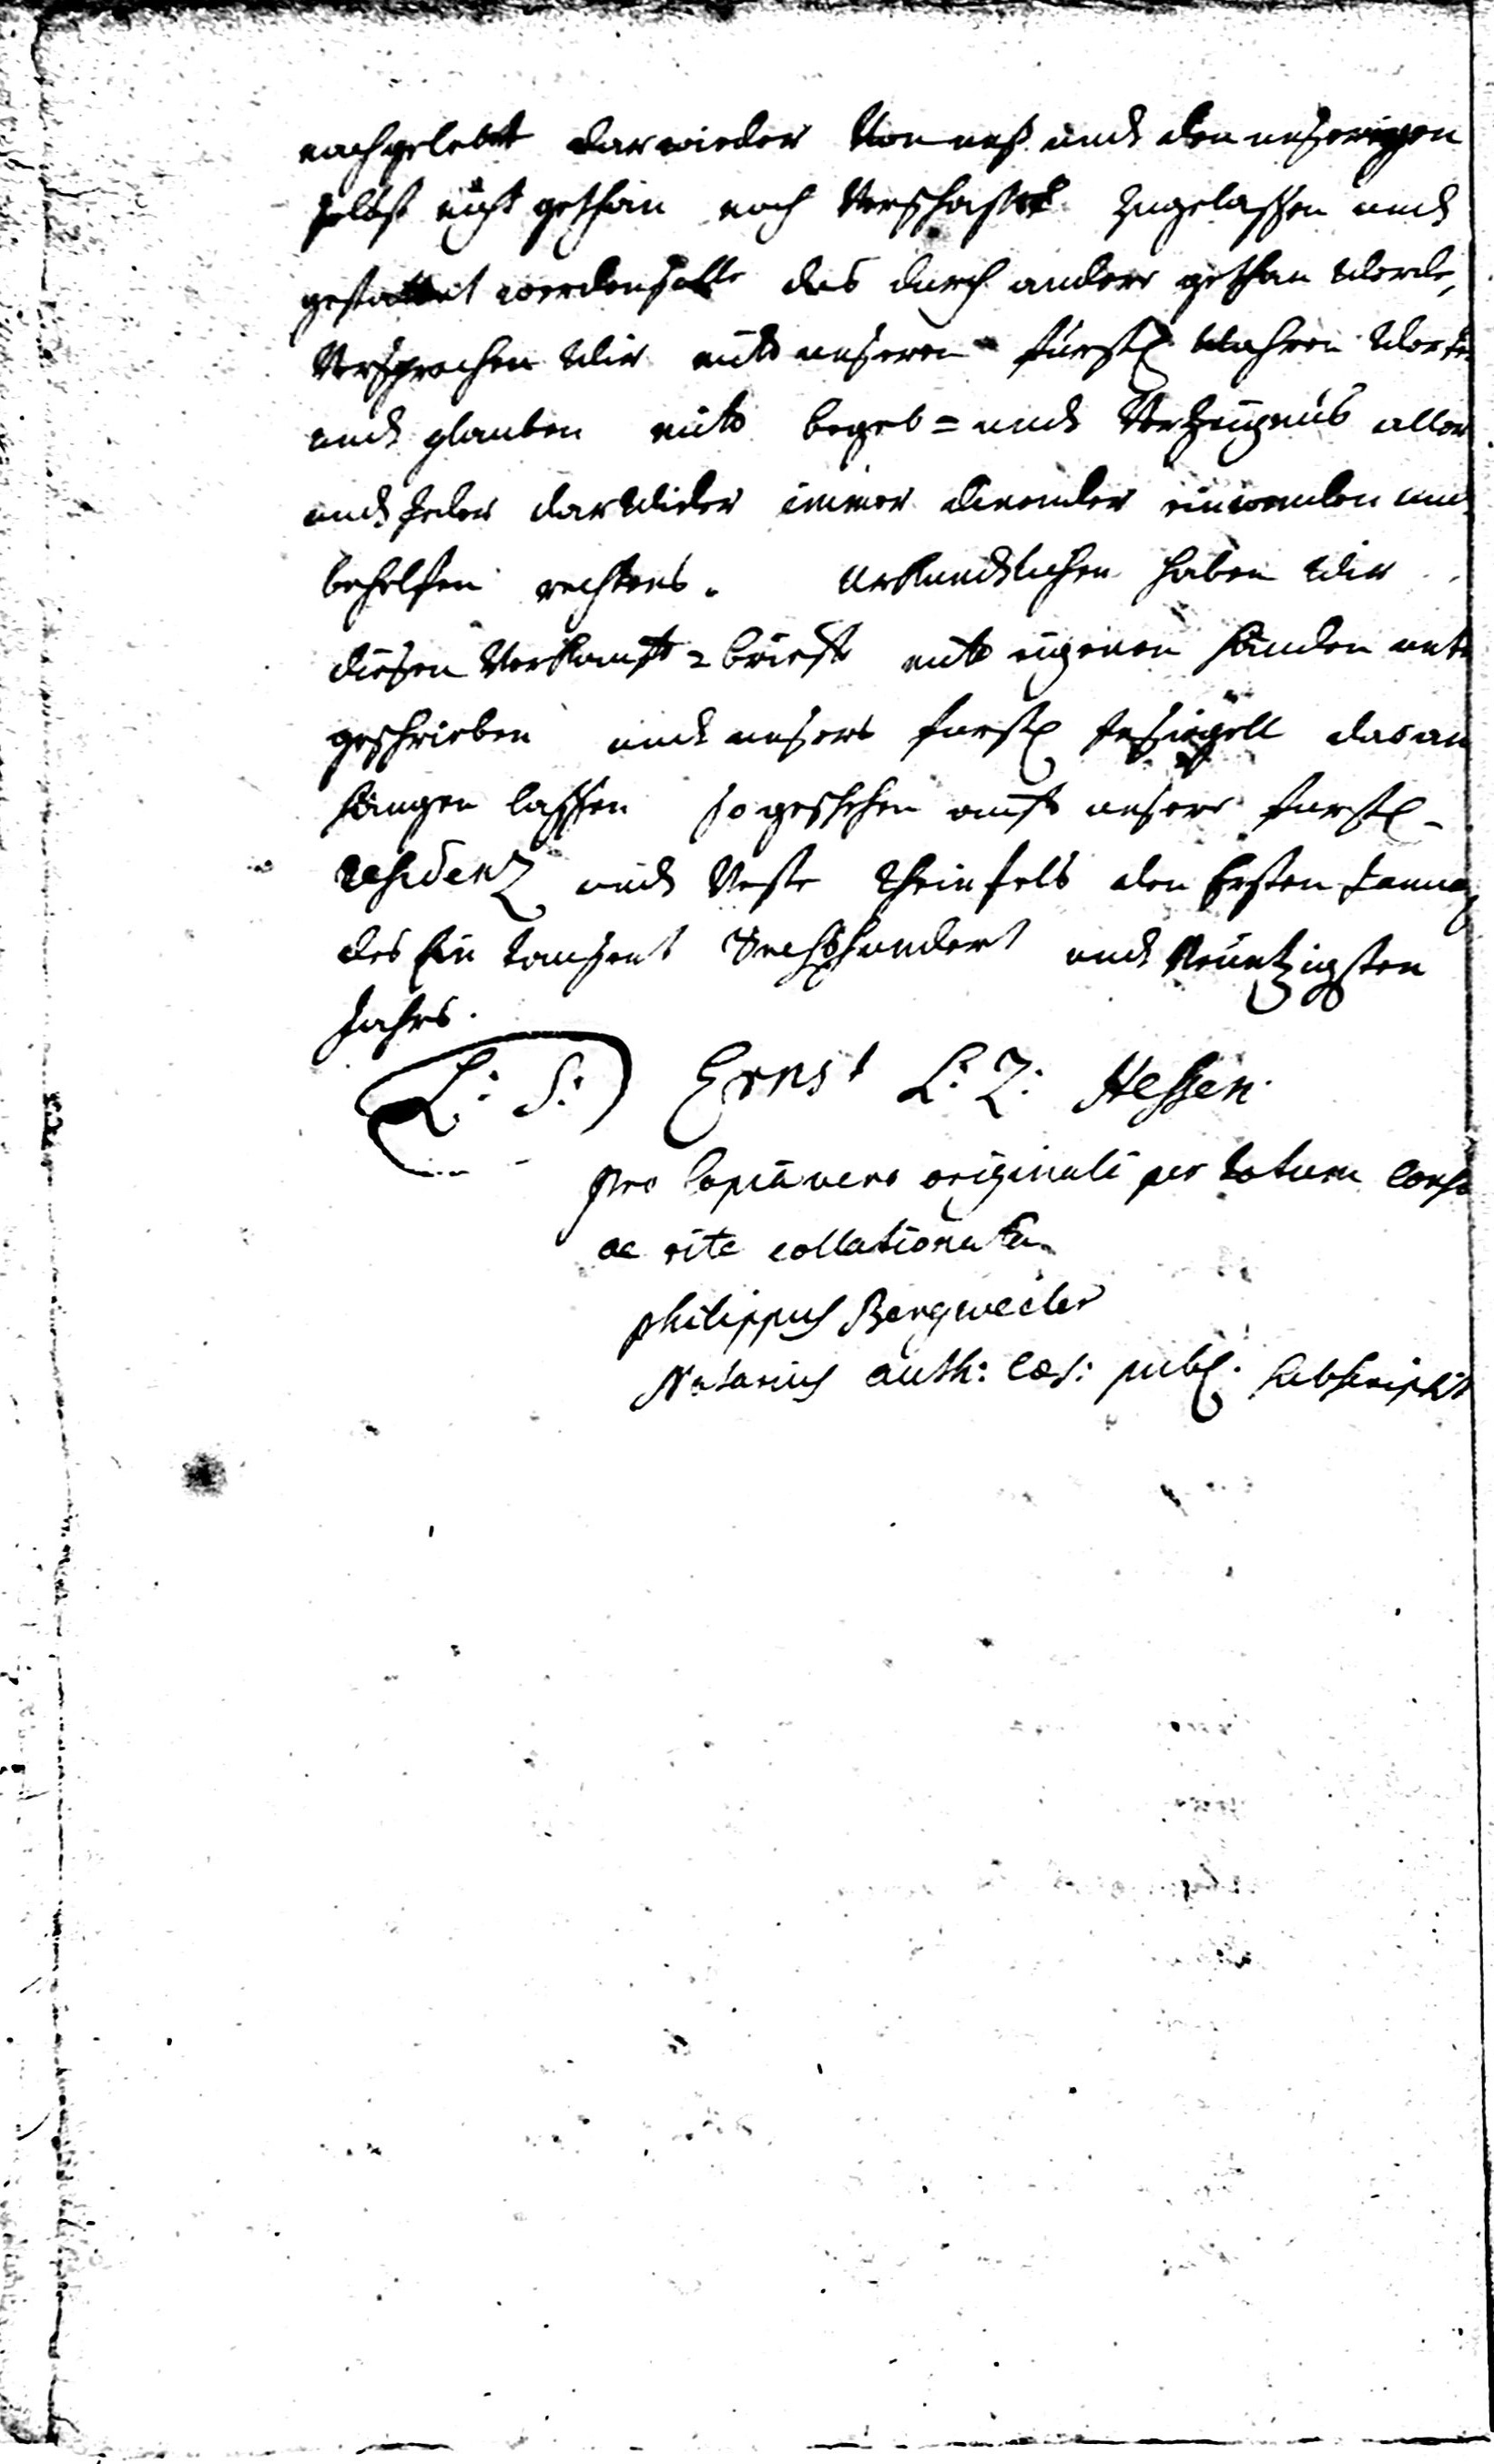 nachgelebt darwieder von unß undt den unserigen
selbst nicht gethan noch verschafft zugelassen undt
gestattet werden solle das durch andere gethan werde,
Versprechen Wir mitt unseren fürstl. Wahren Worten
undt glauben mitt begeb= undt Verzeugnus aller
undt Jeder darwider immer dienender einwenden und
behelffen rechtens. Uhrkundtlichen haben Wir
diesen Verkauff=brieff mitt eigenen Handen unter
geschrieben undt unsers fürstl. Insiegell daran
hangen lassen so geschehen auff unser fürstl.
Residenz undt Veste Rheinfels den Ersten Januarij
des Ein tausent Sechßhundert undt Neuntzigsten
Jahrs.
L: S: Ernst L: Z: Hessen.
pro Copia vero originali per totum
ac rite collationata
Philippus Bergweiler
Notarius auth: Cæs: publ. subscripsit